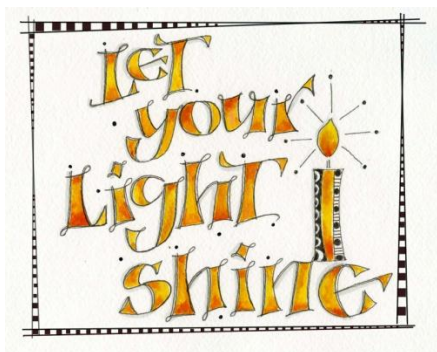 LeT
your
LighT
shine